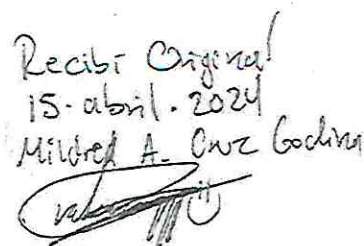 Recibí Original
15-abril-2024
Mildred A. Cruz Godina